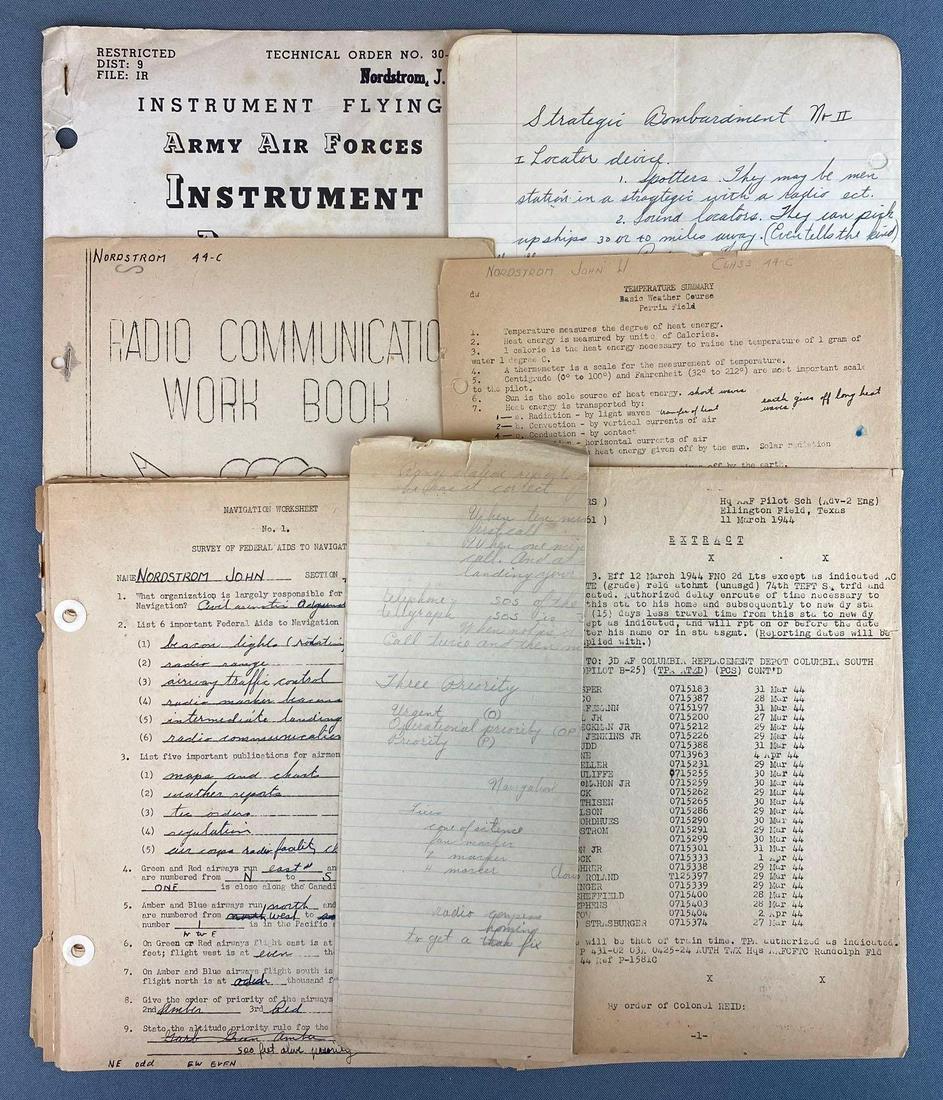 RESTRICTED
DIST: 9
FILE: IR
TECHNICAL ORDER NO. 30-
Nordstrom, J.
INSTRUMENT FLYING
ARMY AIR FORCES
INSTRUMENT
Strategic Bombardment No II
I Locator device.
1. Spotters. They may be men
station in a stragtegic with a radio set.
2. Sound locators. They can pick
up ships 30 or 40 miles away. (Even tells the kind)
NORDSTROM 44-C
RADIO COMMUNICATIO
WORK BOOK
NORDSTROM JOHN W CLASS 44-C
du
TEMPERATURE SUMMARY
Basic Weather Course
Perrin Field
1. Temperature measures the degree of heat energy.
2. Heat energy is measured by units of Calories.
3. 1 calorie is the heat energy necessary to raise the temperature of 1 gram of
water 1 degree C.
4. A thermometer is a scale for the measurement of temperature.
5. Centigrade (0° to 100°) and Fahrenheit (32° to 212°) are most important scale
to the pilot.
6. Sun is the sole source of heat energy, short waves
earth gives off long heat
waves.
7. Heat energy is transported by:
1 - a. Radiation - by light waves transfer of heat
2 - b. Convection - by vertical currents of air
c. Conduction - by contact
- horizontal currents of air
heat energy given off by the sun. Solar radiation
off by the earth.
NAVIGATION WORKSHEET
No. 1.
SURVEY OF FEDERAL AIDS TO NAVIGAT
NAME NORDSTROM JOHN SECTION
1. What organization is largely responsible for
Navigation?
2. List 6 important Federal Aids to Navigation
(1) beacon lights (rotating
(2) radio range
(3) airway traffic control
(4) radio marker beacons
(5) intermediate landing
(6) radio communication
3. List five important publications for airmen
(1) maps and chart
(2) weather reports
(3) tec orders
(4) regulation
(5) air corps radio facility ch
4. Green and Red airways run east
are numbered from N to S
ONE is close along the Canadi
5. Amber and Blue airways run north and
are numbered from west to
number 1 is in the Pacific
N W E
6. On Green or Red airways flight east is at
feet; flight west is at even th
7. On Amber and Blue airways flight south is
flight north is at odd thousand f
8. Give the order of priority of the airways
2nd Amber 3rd Red
9. State the altitude priority rule for the
Green Amber
500 feet
NE odd EW EVEN
be has it correct
When two min
When one min
call. And at
landing your
telephone sos of the
telegraph sos is
Call twice and then
Three Priority
Urgent (O)
Operational priority (OP
Priority (P)
Navigation
cone of silence
fan marker
Z marker
marker
radio
homing
to get a fix
RS )
Hq AAF Pilot Sch (Adv-2 Eng)
Ellington Field, Texas
61 )
11 March 1944
E X T R A C T
X X
3. Eff 12 March 1944 FNO 2d Lts except as indicated AC
TE (grade) reld atchmt (unasgd) 74th TEFT S., trfd and
cated. Authorized delay enroute of time necessary to
this sta to his home and subsequently to new dy sta
(15) days less travel time from this sta to new dy
ept as indicated, and will rpt on or before the date
ter his name or in sta assgmt. (Reporting dates will be
plied with.)
TO: 3D AF COLUMBIA REPLACEMENT DEPOT COLUMBIA SOUTH
PILOT B-25) (TPA ATED) (PCS) CONT'D
SPER 0715183 31 Mar 44
CO 0715387 28 Mar 44
0715197 31 Mar 44
L JR 0715200 27 Mar 44
ECKMAN JR 0715212 29 Mar 44
JENKINS JR 0715226 29 Mar 44
UDD 0715388 31 Mar 44
NE 0713963 4 Apr 44
ELLER 0715231 29 Mar 44
ULIFFE 0715255 30 Mar 44
MAHON JR 0715259 30 Mar 44
CK 0715262 29 Mar 44
THISEN 0715265 30 Mar 44
LSON 0715286 29 Mar 44
ORDHUES 0715290 30 Mar 44
STROM 0715291 29 Mar 44
0715299 30 Mar 44
EN JR 0715301 31 Mar 44
OCK 0715333 1 Apr 44
HRER 0715338 29 Mar 44
ROLAND T125397 29 Mar 44
INGER 0715339 29 Mar 44
SHEFFIELD 0715400 28 Mar 44
PHENS 0715403 28 Mar 44
0715404 2 Apr 44
STRASBURGER 0715374 27 Mar 44
will be that of train time. TPA authorized as indicated.
P 431-02 03, 0425-24 AUTH TWX Hqs AAFCFTC Randolph Fld
44 Ref P-1581C
X X
By order of Colonel REID:
-1-